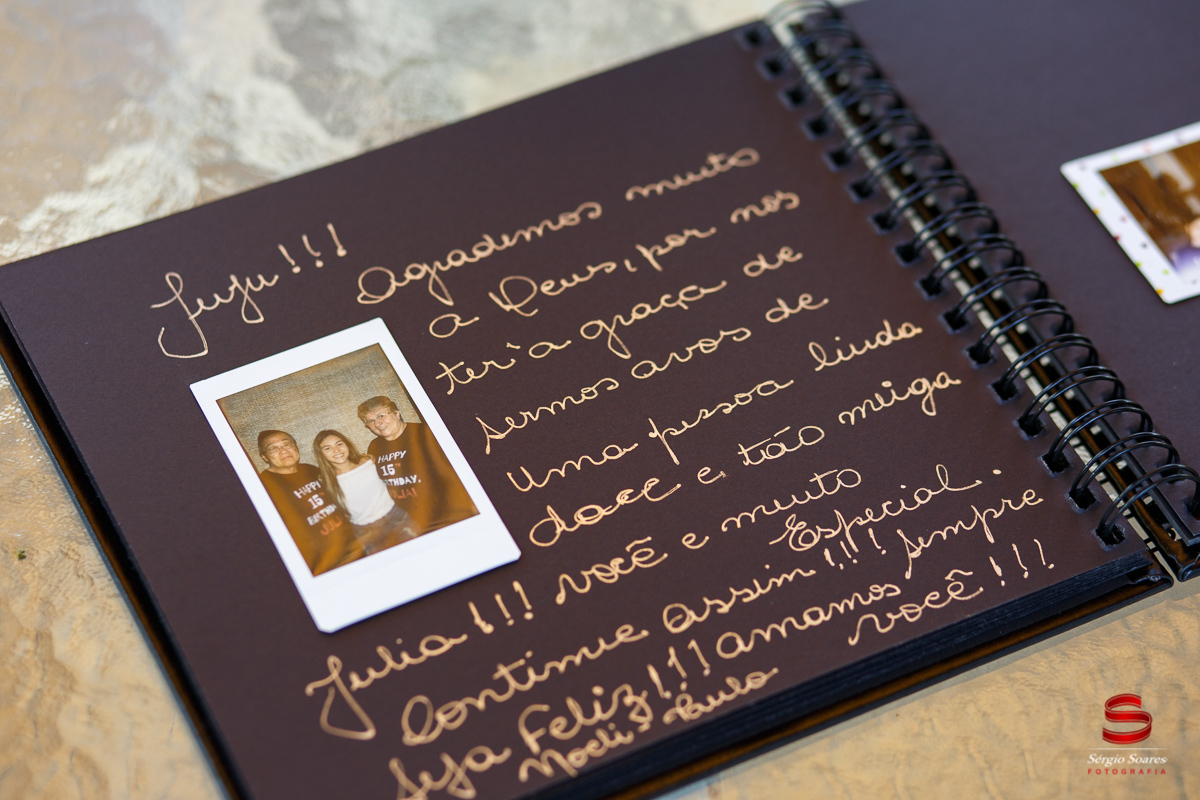 Juju!!!
Agrademos muito
a Deus, por nos
ter a graça de
sermos avos de
uma pessoa linda
doce e tão meiga
Julia!!! você e muito
Especial.
Continue assim!!! Sempre
seja Feliz!!! amamos
você!!!
Noeli e Paulo
HAPPY
15
BIRTHDAY,
JULIA!
HAPPY
15TH
BIRTHDAY,
JULIA!
S
Sérgio Soares
FOTOGRAFIA